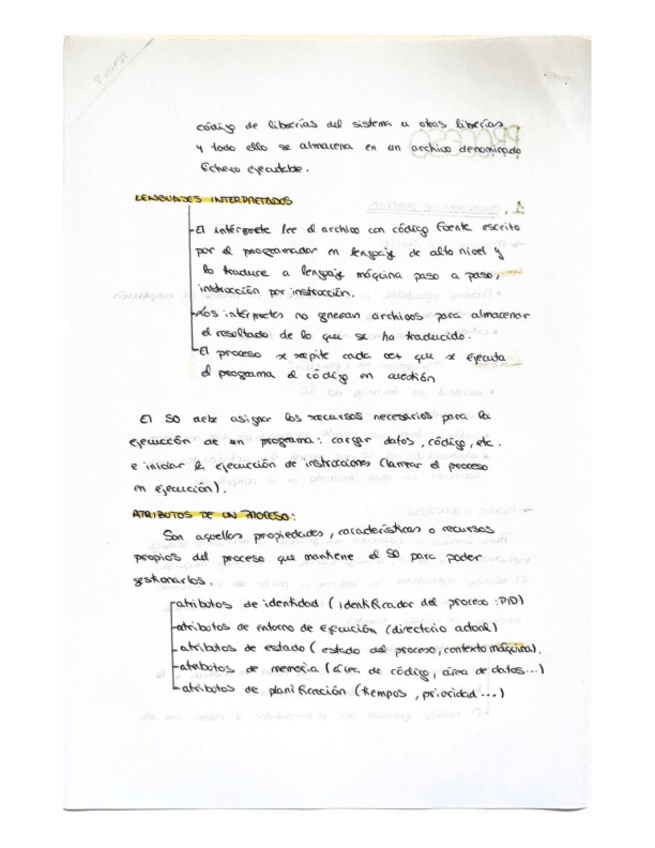 código de librerías del sistema u otras librerías
y todo ello se almacena en un archivo denominado
fichero ejecutable.
LENGUAJES INTERPRETADOS
El intérprete lee el archivo con código fuente escrito
por el programador en lenguaje de alto nivel y
lo traduce a lenguaje máquina paso a paso,
instrucción por instrucción.
Los intérpretes no generan archivos para almacenar
el resultado de lo que se ha traducido.
El proceso se repite cada vez que se ejecuta
el programa el código en cuestión
El SO debe asignar los recursos necesarios para la
ejecución de un programa: cargar datos, código, etc.
e iniciar la ejecución de instrucciones (lanzar el proceso
en ejecución).
ATRIBUTOS DE UN PROCESO:
Son aquellos propiedades, características o recursos
propios del proceso que mantiene el SO para poder
gestionarlos.
atributos de identidad (identificador del proceso: PID)
atributos de entorno de ejecución (directorio actual)
atributos de estado (estado del proceso, contexto máquina).
atributos de memoria (área de código, área de datos...)
atributos de planificación (tiempos, prioridad...)